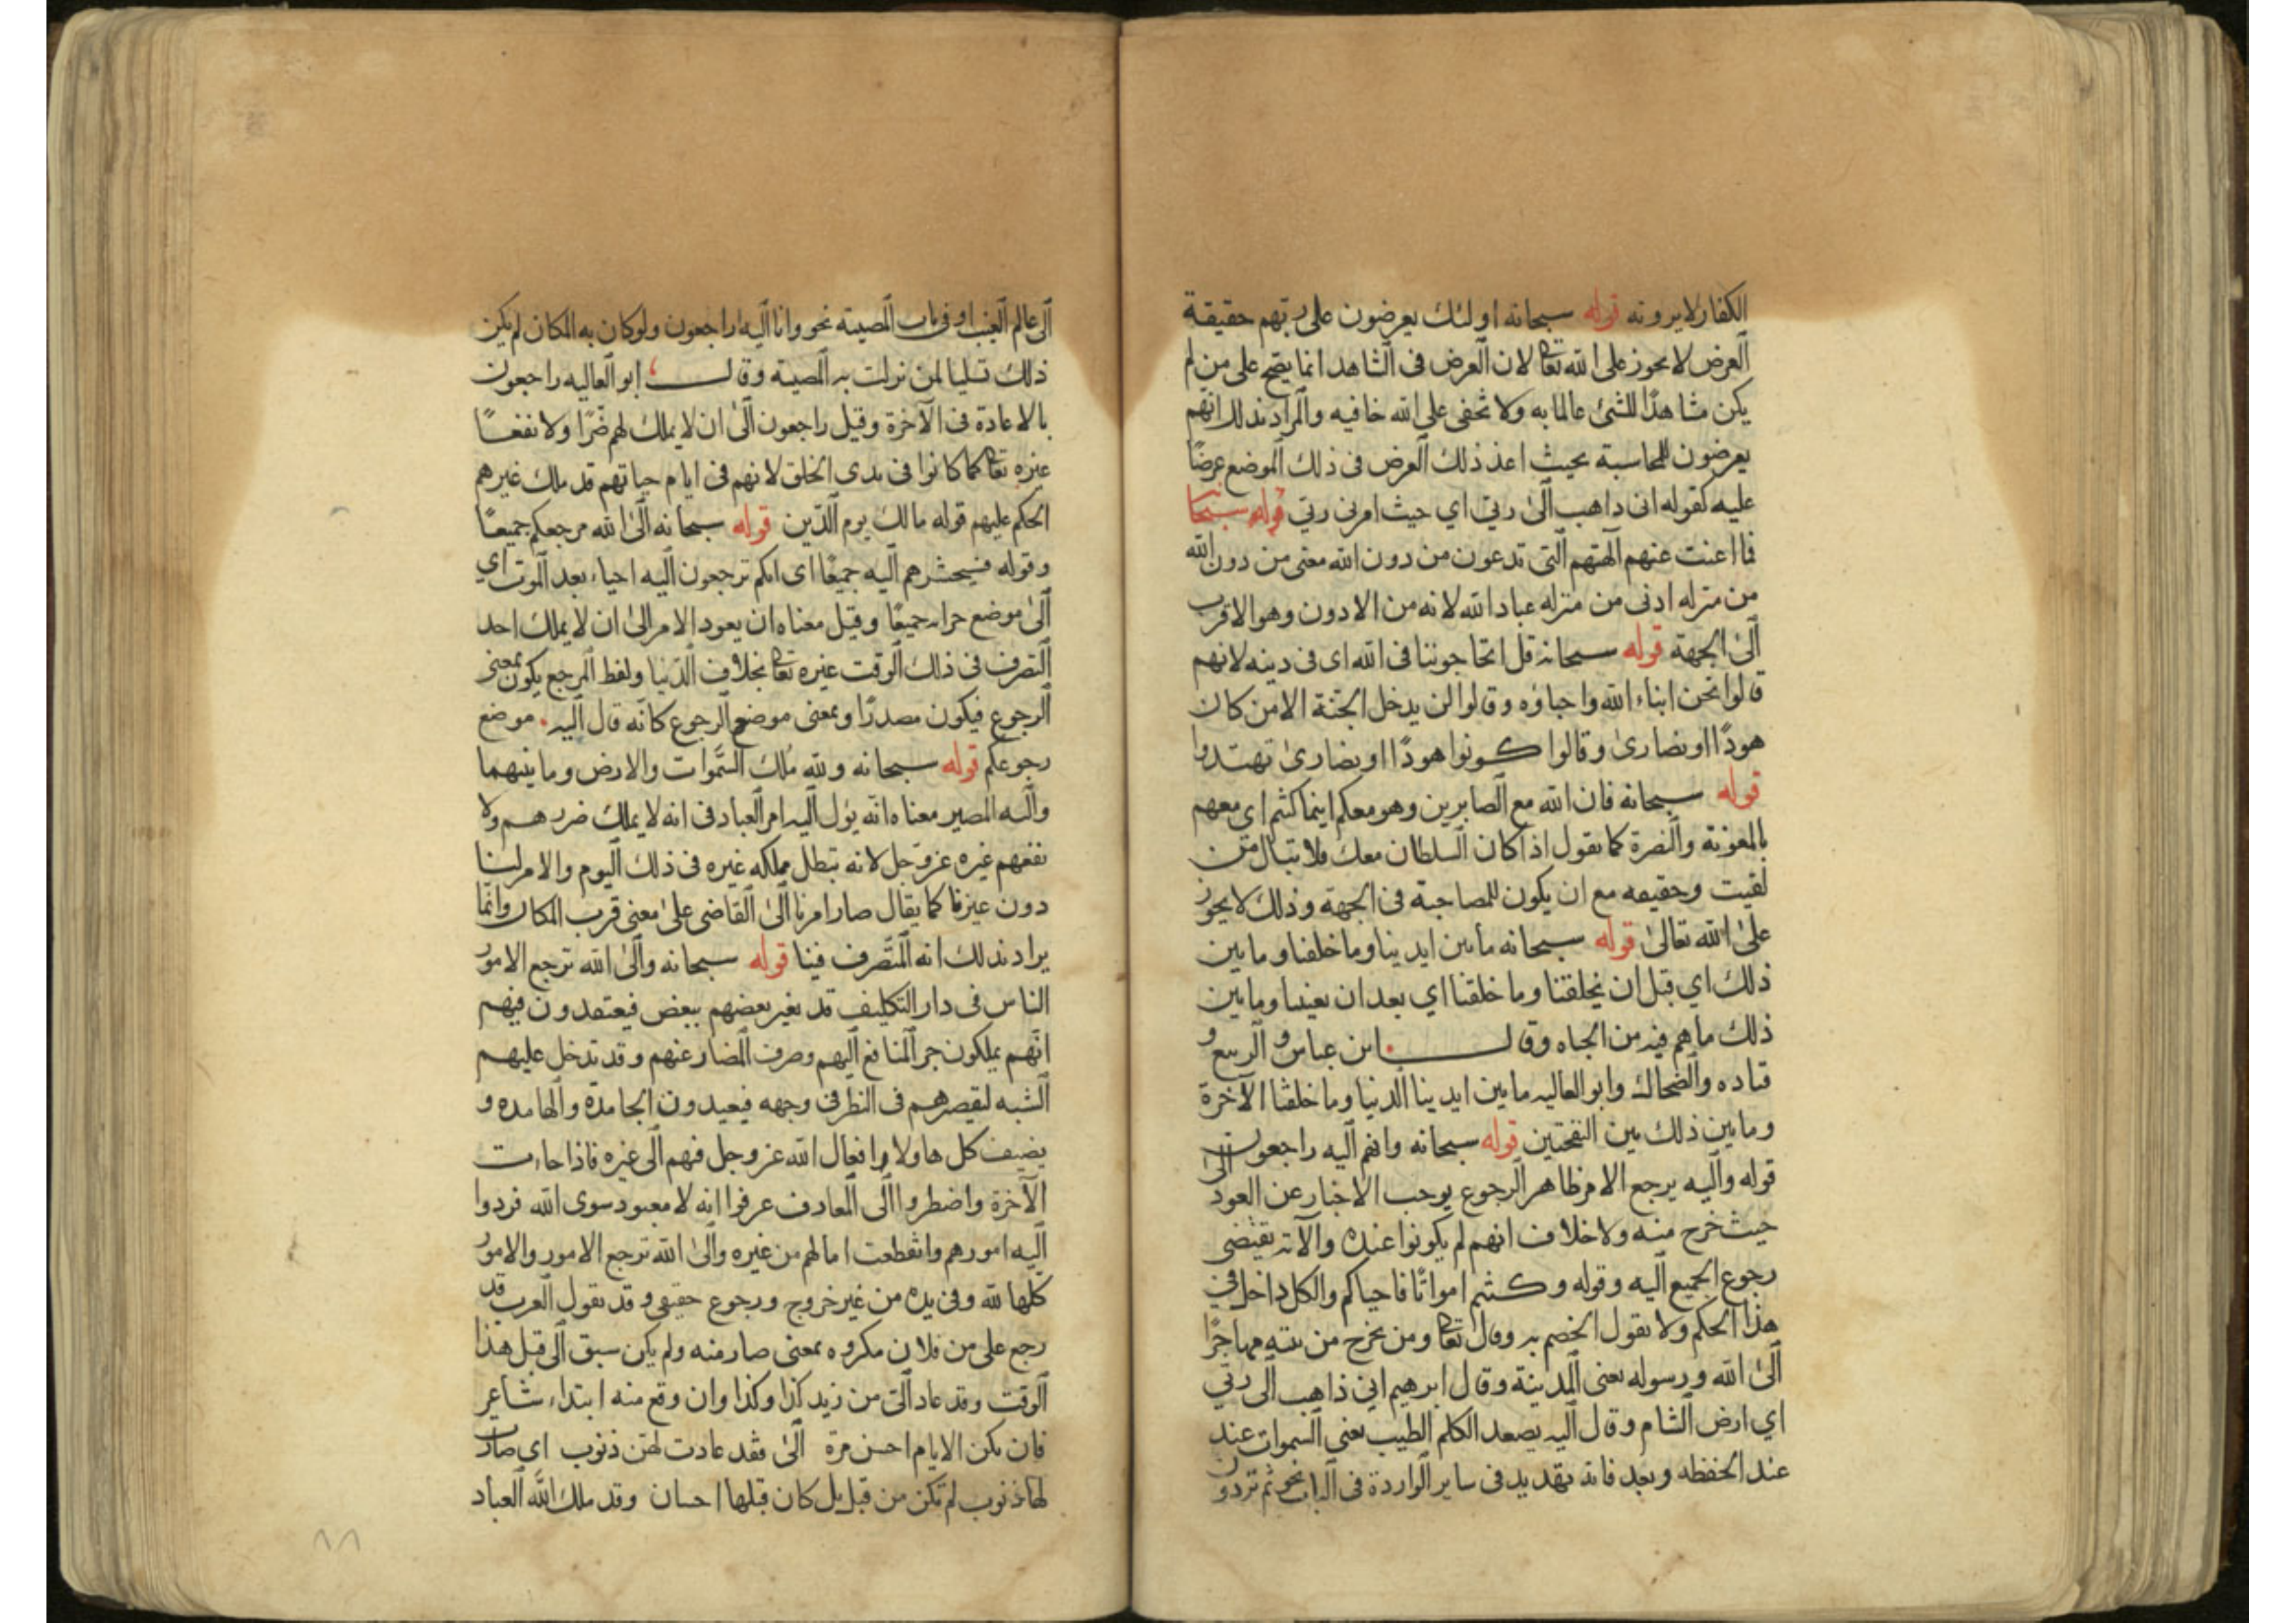 الكفار لا يرونه قوله سبحانه اولئك يعرضون على ربهم حقيقة
العرض لا يحوز على الله تعا لان العرض فى الشاهد انما يصح على من لم
يكن مشاهدًا للشئ عالما به ولا تخفى على الله خافيه والمراد بذلك انهم
يعرضون للمحاسبة بحيث اعد ذلك العرض فى ذلك الموضع عرضًا
عليه كقوله انى داهب الى ربي اي حيث امرنى ربي قوله سبحا
فما اعنت عنهم الهتهم التى تدعون من دون الله معنى من دون الله
من منزله ادنى من منزله عباد الله لانه من الادون وهو الاقرب
الى الجهة قوله سبحانه قل اتحاجوننا فى الله اى فى دينه لانهم
قالوا نحن ابناء الله واحباؤه وقالوا لن يدخل الجنة الا من كان
هودًا او نصارى وقالوا كونوا هودًا او نصارى تهتدوا
قوله سبحانه فان الله مع الصابرين وهو معكم اينما كنتم اى معهم
بالمعونة والنصرة كما نقول اذا كان السلطان معك فلا تبال من
لقيت وحقيقه مع ان يكون للمصاحبة فى الجهة وذلك لا يجوز
على الله تعالى قوله سبحانه مابين ايدينا وما خلفنا وما بين
ذلك اي قبل ان يخلقنا وما خلفنا اي بعد ان يفنينا وما بين
ذلك ما هم فيه من الحياه وقال ابن عباس و الربيع و
قتاده والضحاك وابو العاليه ما بين ايدينا الدنيا وما خلفنا الآخرة
وما بين ذلك بين النفختين قوله سبحانه وانهم اليه راجعون
قوله واليه يرجع الامر ظاهر الرجوع يوجب الاخبار عن العود الى
حيث خرج منه ولا خلاف انهم لم يكونوا عنده والآية تقتضى
رجوع الجميع اليه وقوله وكنتم امواتًا فاحياكم والكل داخل في
هذا الحكم ولا نقول الخصم به وقال تعا ومن يخرج من بيته مهاجرًا
الى الله ورسوله يعنى المدينة وقال ابرهيم اني ذاهب الى ربي
اي ارض الشام وقال اليه يصعد الكلم الطيب يعنى السموات عند
عند الحفظه وبعد فانه تهديد فى ساير الواردة فى الباب نحو ثم تردون
الى عالم الغيب او فى باب المصيبه نحو وانا اليه راجعون ولو كان به المكان لم يكن
ذلك تسليا لمن نزلت به المصيبه وقال ابو العاليه راجعون
بالاعادة فى الآخرة وقيل راجعون الى ان لا يملك لهم ضرًا ولا نفعًا
غيره تعا كما كانوا فى بدى الخلق لانهم فى ايام حياتهم قد ملك غيرهم
الحكم عليهم قوله مالك يوم الدين قوله سبحانه الى الله مرجعكم جميعًا
وقوله فسيحشرهم اليه جميعًا اى انكم ترجعون اليه احياء بعد الموت اي
الى موضع جزاء جميعًا وقيل معناه ان يعود الامر الى ان لا يملك احد
التصرف فى ذلك الوقت غيره تعا بخلاف الدنيا ولفظ المرجع يكون بمعنى
الرجوع فيكون مصدرًا وبمعنى موضع الرجوع كانه قال اليه موضع
رجوعكم قوله سبحانه ولله مُلك السَّموات والارض وما بينهما
واليه المصير معناه انه يؤل اليه امر العباد فى انه لا يملك ضررهم ولا
نفعهم غيره عز وجل لانه تبطل مملكه غيره فى ذلك اليوم والامر لنا
دون غيرنا كما يقال صار امرنا الى القاضى على معنى قرب المكان وانما
يراد بذلك انه المتصرف فينا قوله سبحانه والى الله ترجع الامور
الناس فى دار التكليف قد يغير بعضهم ببعض فيعتقدون فيهم
انهم يملكون جر المنافع اليهم وصرف المضار عنهم وقد تدخل عليهم
الشبه لتقصيرهم فى النظر فى وجهه فيعبدون الجامدة والهامده و
يضيف كل هاولاء افعال الله عز وجل فيهم الى غيره فاذا جاءت
الآخرة واضطروا الى المعارف عرفوا انه لا معبود سوى الله فردوا
اليه امورهم وانقطعت امالهم من غيره والى الله ترجع الامور والامور
كلها لله وفى يده من غير خروج ورجوع حقيقي وقد تقول العرب قد
رجع على من فلان مكروه بمعنى صار منه ولم يكن سبق الى قبل هذا
الوقت وقد عاد الى من زيد كذا وكذا وان وقع منه ابتداء شاعر
فان يكن الايام احسن مرة الى فقد عادت لهن ذنوب اي صارت
لها ذنوب لم تكن من قبل بل كان قبلها احسان وقد ملك الله العباد
٨٨